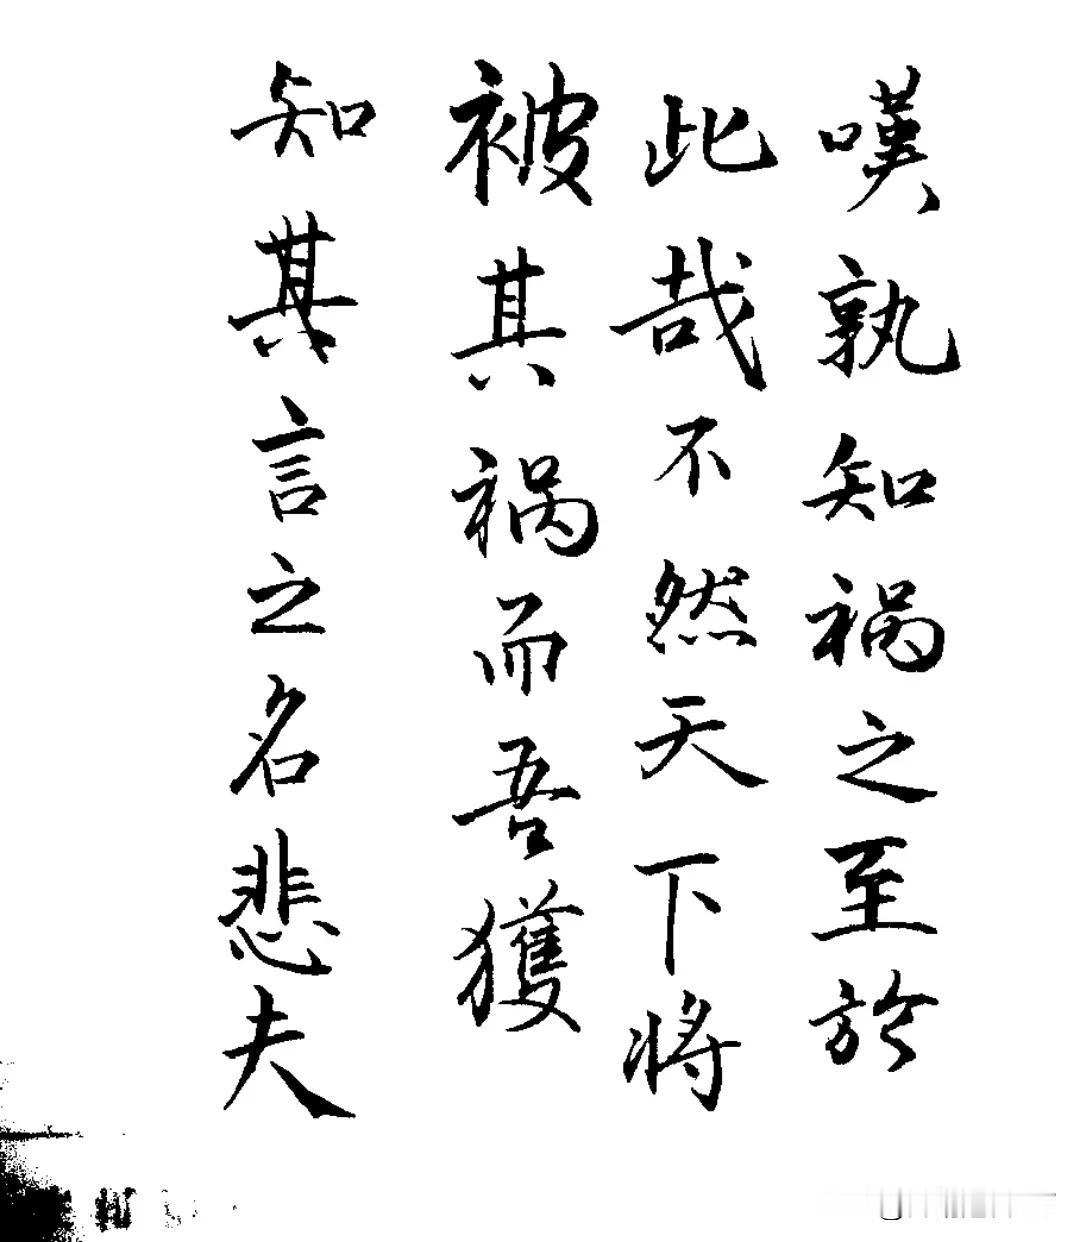 嘆孰知祸之至於
此哉不然天下将
被其祸而吾獲
知其言之名悲夫